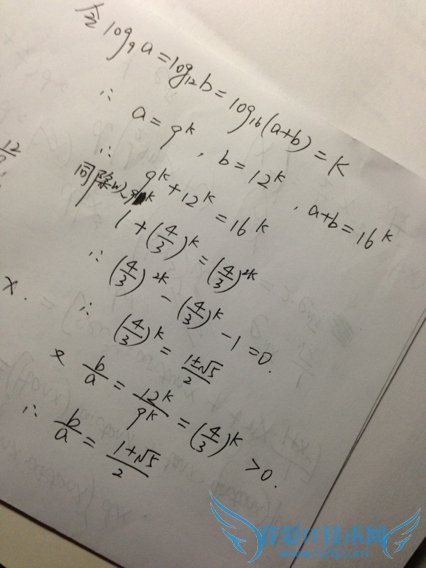 令 log₉a=log₁₂b=log₁₆(a+b)=K
∴ a=9^k, b=12^k, a+b=16^k
∴ 9^k+12^k=16^k
同除以9^k
1+(4/3)^k=(4/3)^2k
∴ (4/3)^2k-(4/3)^k-1=0.
∴ (4/3)^k=(1±√5)/2
又 b/a=12^k/9^k=(4/3)^k>0.
∴ b/a=(1+√5)/2
12
X.